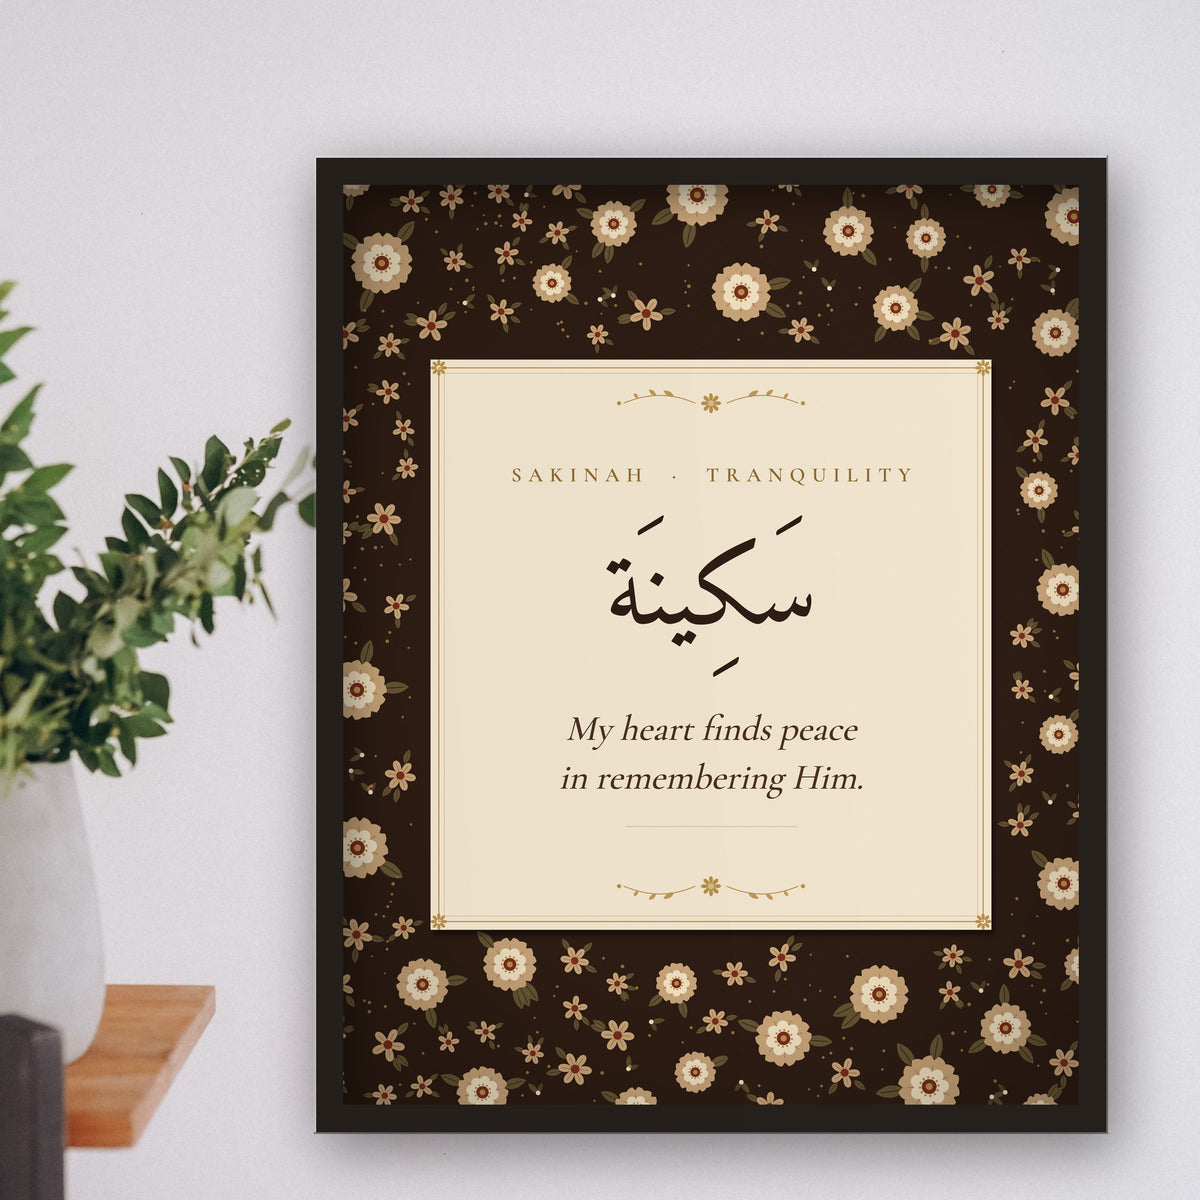 SAKINAH · TRANQUILITY
سَكِينَة
My heart finds peace
in remembering Him.